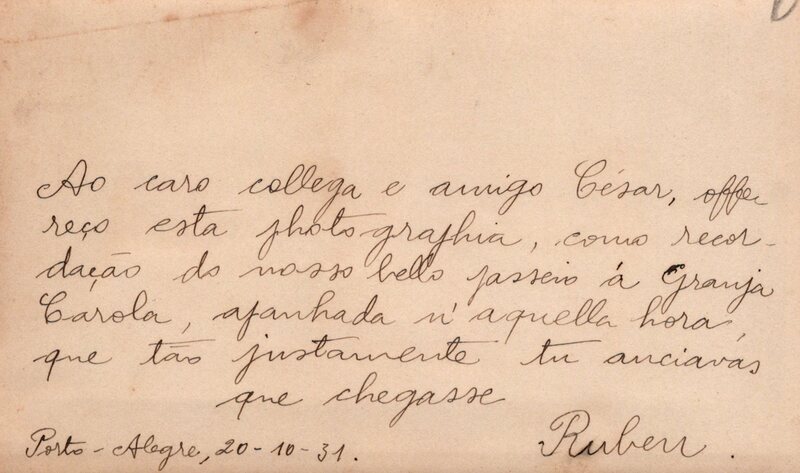 Ao caro collega e amigo César, offe
reço esta photographia, como recor-
dação do nosso bello passeio á Granja
Carola, apanhada n'aquella hora,
que tão justamente tu anciavas
que chegasse
Ruben.
Porto-Alegre, 20-10-31.